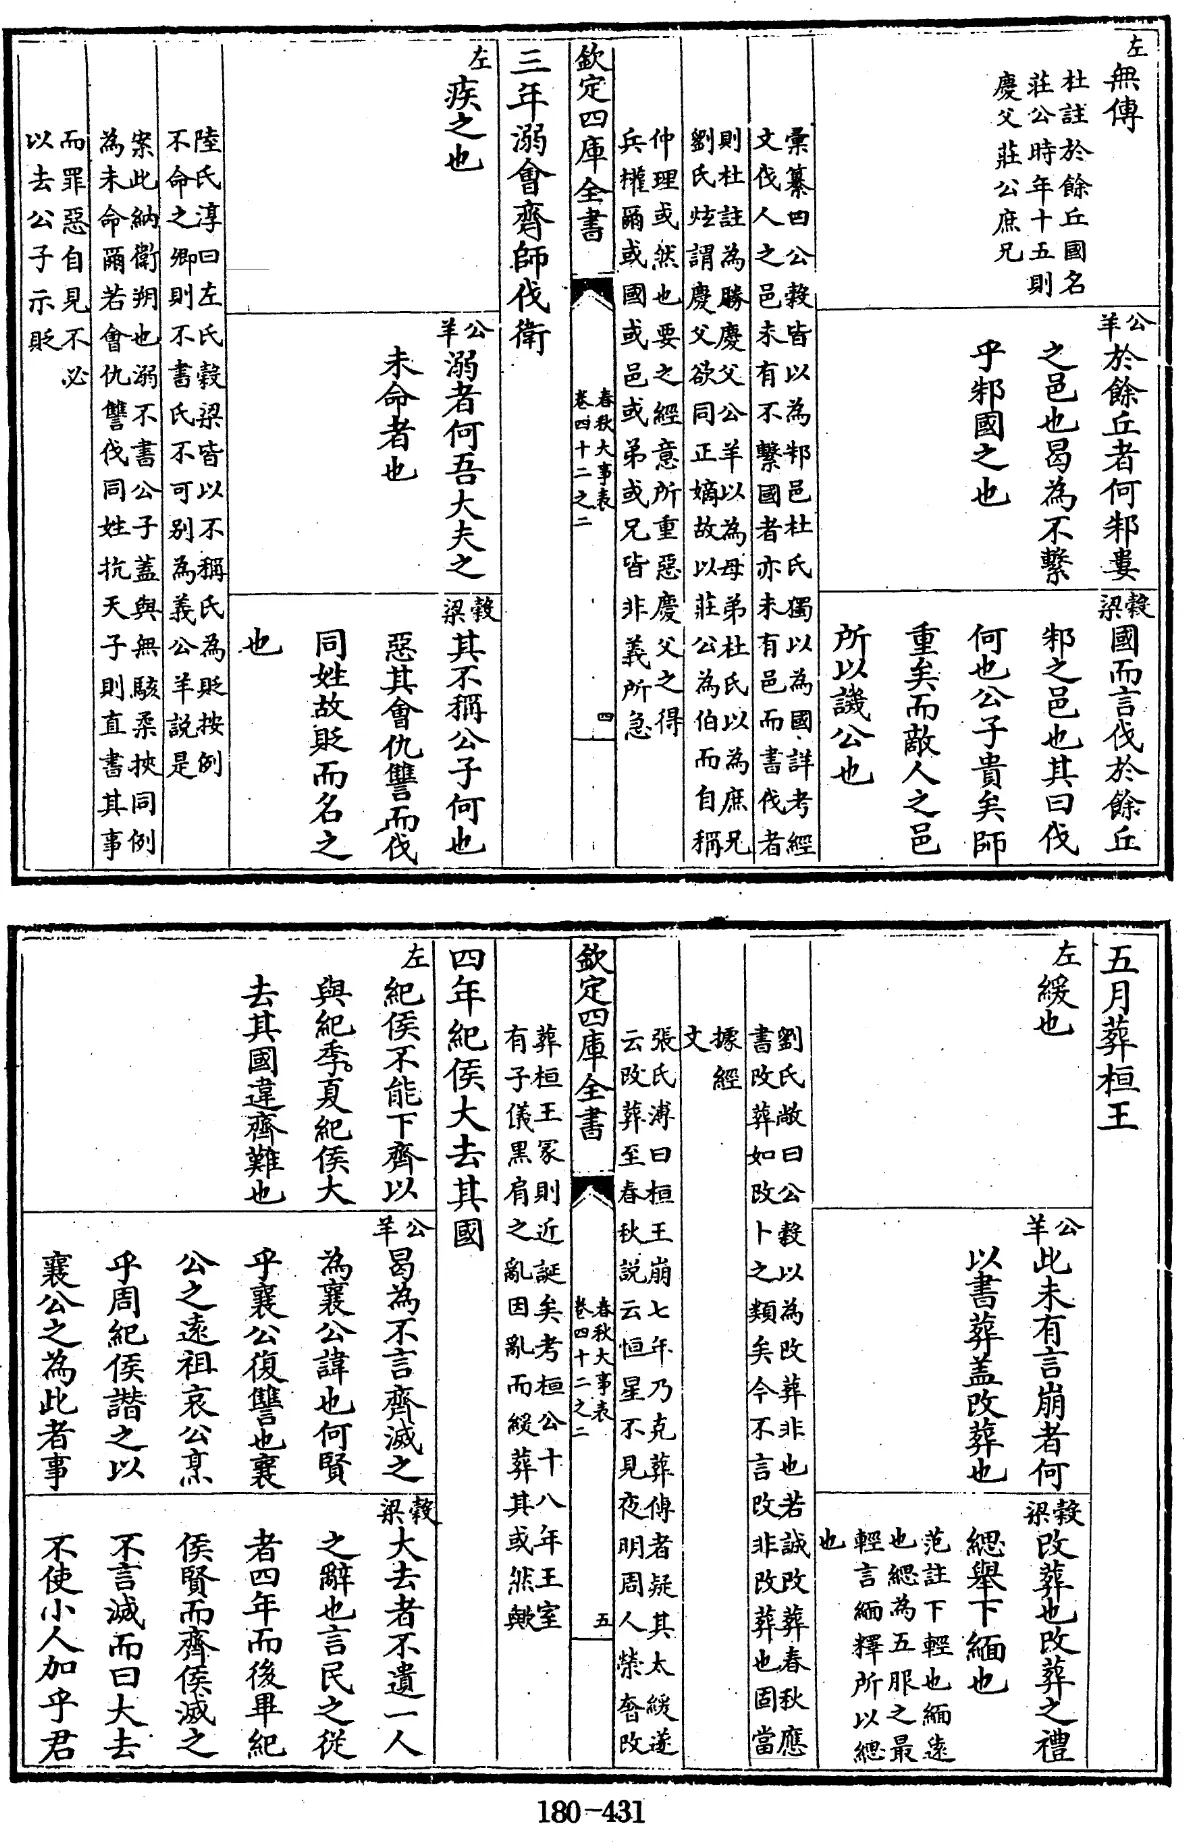 左
無傳
杜註於餘丘國名
莊公時年十五則
慶父莊公庶兄
公羊
於餘丘者何邾婁
之邑也曷為不繫
乎邾國之也
穀梁
國而言伐於餘丘
邾之邑也其曰伐
何也公子貴矣師
重矣而敵人之邑
所以譏公也
彙纂曰公穀皆以為邾邑杜氏獨以為國詳考經
文伐人之邑未有不繫國者亦未有邑而書伐者
則杜註為勝慶父公羊以為母弟杜氏以為庶兄
劉氏炫謂慶父欲同正嫡故以莊公為伯而自稱
仲理或然也要之經意所重惡慶父之得
兵權爾或國或邑或弟或兄皆非義所急
欽定四庫全書
春秋大事表
卷四十二之二
四
三年溺會齊師伐衛
左
疾之也
公羊
溺者何吾大夫之
未命者也
穀梁
其不稱公子何也
惡其會仇讐而伐
同姓故貶而名之
也
陸氏淳曰左氏穀梁皆以不稱氏為貶按例
不命之卿則不書氏不可別為義公羊説是
案此納衛朔也溺不書公子蓋與無駭柔挾同例
為未命爾若會仇讐伐同姓抗天子則直書其事
而罪惡自見不必
以去公子示貶
五月葬桓王
左
緩也
公羊
此未有言崩者何
以書葬盖改葬也
穀梁
改葬也改葬之禮
緦舉下緬也
范註下輕也緬遠
也緦為五服之最
輕言緬釋所以緦
也
劉氏敞曰公穀以為改葬非也若誠改葬春秋應
書改葬如改卜之類矣今不言改非改葬也固當
據經
文
張氏溥曰桓王崩七年乃克葬傳者疑其太緩遂
云改葬至春秋説云恒星不見夜明周人榮奢改
欽定四庫全書
春秋大事表
卷四十二之二
五
葬桓王冢則近誕矣考桓公十八年王室
有子儀黑肩之亂因亂而緩葬其或然歟
四年紀侯大去其國
左
紀侯不能下齊以
與紀季夏紀侯大
去其國違齊難也
公羊
曷為不言齊滅之
為襄公諱也何賢
乎襄公復讐也襄
公之遠祖哀公烹
乎周紀侯譖之以
襄公之為此者事
穀梁
大去者不遺一人
之辭也言民之從
者四年而後畢紀
侯賢而齊侯滅之
不言滅而曰大去
不使小人加乎君
180-431